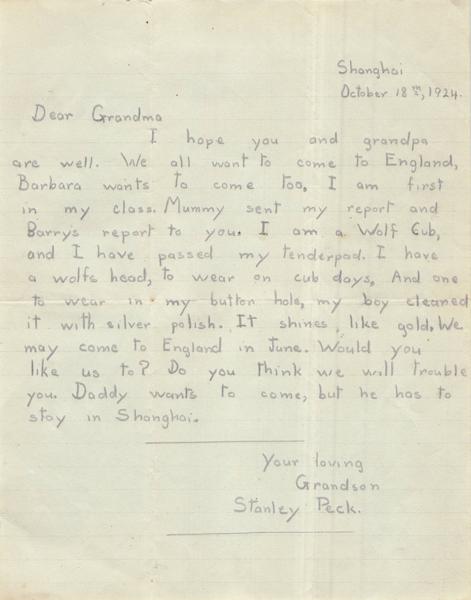 Shanghai
October 18th, 1924.
Dear Grandma
I hope you and grandpa
are well. We all want to come to England,
Barbara wants to come too, I am first
in my class. Mummy sent my report and
Barry's report to you. I am a Wolf Cub,
and I have passed my tenderpad. I have
a wolfs head, to wear on cub days, And one
to wear in my button hole, my boy cleaned
it with silver polish. It shines like gold. We
may come to England in June. Would you
like us to? Do you think we will trouble
you. Daddy wants to come, but he has to
stay in Shanghai.
Your loving
Grandson
Stanley Peck.